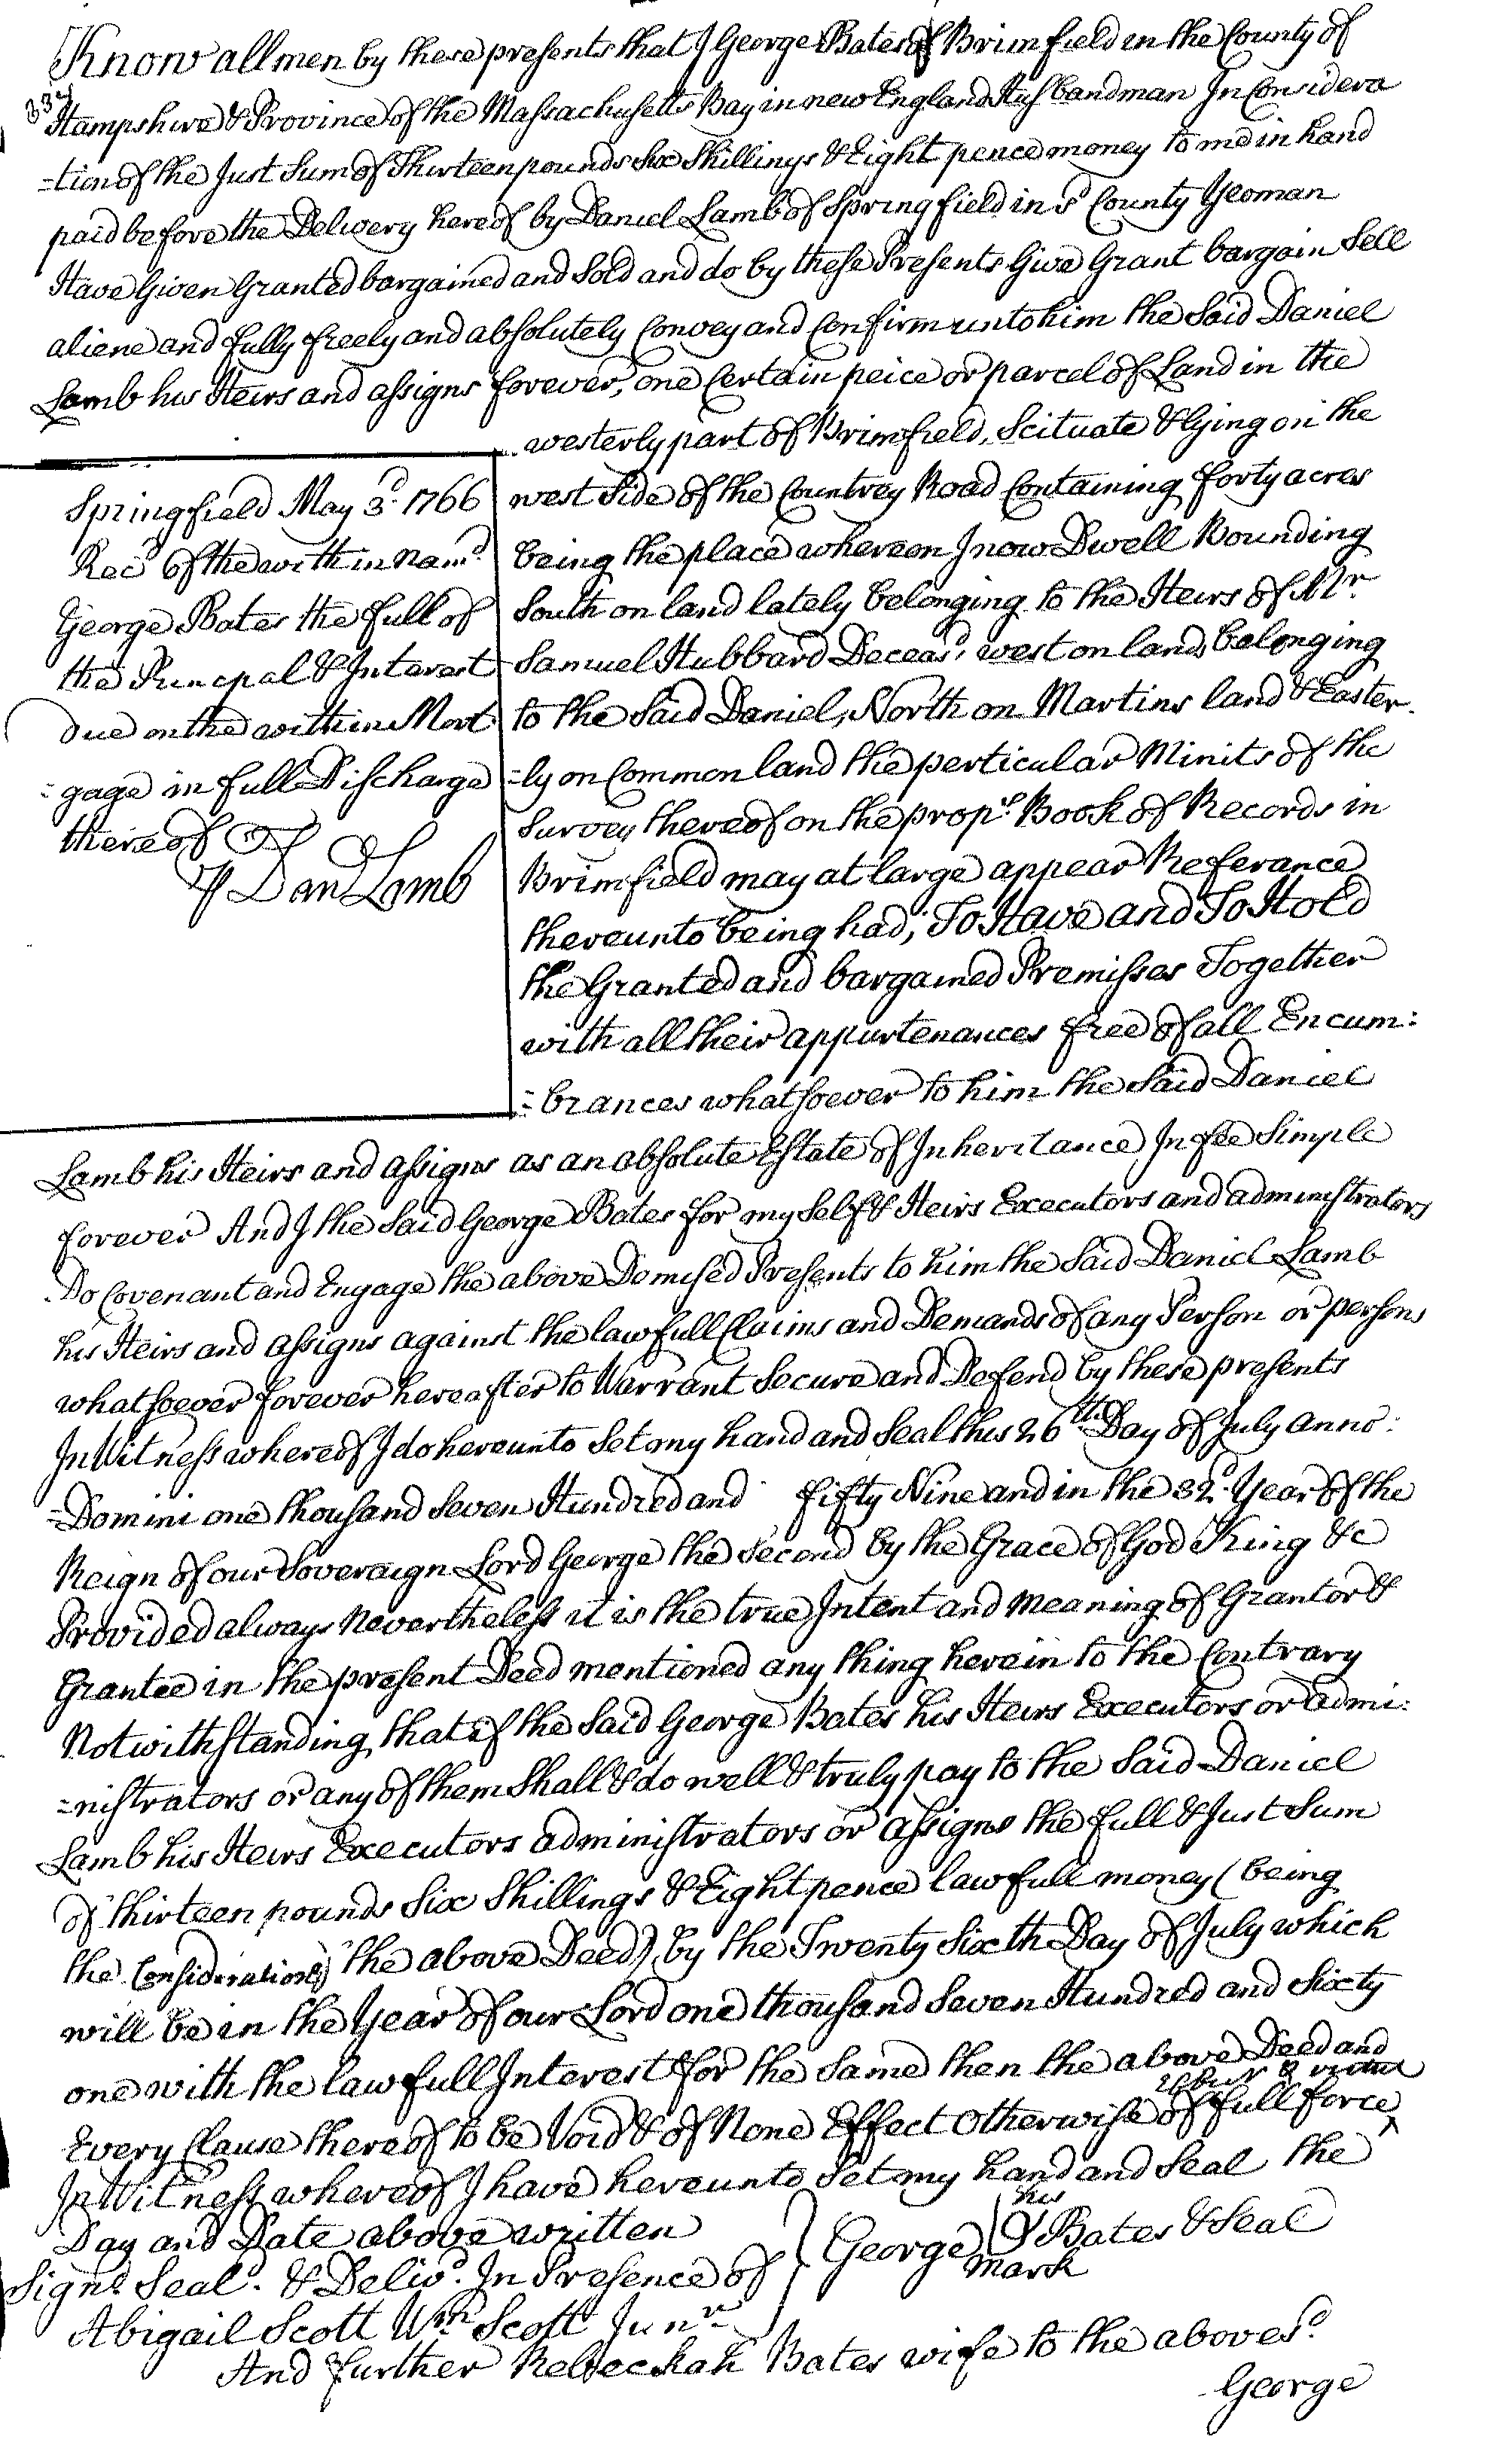 Know all men by these presents that I George Bates of Brimfield in the County of
Hampshire & Province of the Massachusetts Bay in new England Husbandman In Considera
=tion of the Just Sum of Thirteen pounds Six Shillings & Eight pence money to me in hand
paid before the Delivery hereof by Daniel Lamb of Springfield in sd County Yeoman
Have Given Granted bargained and Sold and do by these Presents Give Grant bargain Sell
aliene and fully freely and absolutely Convey and Confirm unto him the Said Daniel
Lamb his Heirs and assigns forever, one Certain peice or parcel of Land in the
westerly part of Brimfield, Scituate & lying on the
west Side of the Countrey Road Containing forty acres
being the place whereon I now Dwell Bounding
South on land lately belonging to the Heirs of Mr.
Samuel Hubbard Deceasd, west on land belonging
to the Said Daniel, North on Martins land & Easter
=ly on Common land the perticular Minits of the
Survey thereof on the proprs Book of Records in
Brimfield may at large appear Referance
thereunto being had; To Have and To Hold
the Granted and bargained Premisses Together
with all their appurtenances free of all Encum:
=brances whatsoever to him the Said Daniel
Springfield May 3d. 1766
Recd of the within namd
George Bates the full of
the Principal & Interest
due on the within Mort
=gage in full Discharge
thereof
P Dan Lamb
Lamb his Heirs and assigns as an absolute Estate of Inheritance In fee Simple
forever And I the Said George Bates for my Self & Heirs Executors and administrators
Do Covenant and Engage the above Demised Presents to him the Said Daniel Lamb
his Heirs and assigns against the lawfull Claims and Demands of any Person or persons
whatsoever forever hereafter to Warrant Secure and Defend by these presents
In Witness whereof I do hereunto Set my hand and Seal this 26th Day of July anno:
=Domini one thousand Seven Hundred and fifty Nine and in the 32d. Year of the
Reign of our Soveraign Lord George the Second by the Grace of God King &c
Provided always Nevertheless it is the true Intent and meaning of Grantor &
Grantee in the present Deed mentioned any thing herein to the Contrary
Notwithstanding that if the Said George Bates his Heirs Executors or admi:
=nistrators or any of them Shall & do well & truly pay to the Said Daniel
Lamb his Heirs Executors administrators or assigns the full & Just Sum
of thirteen pounds Six Shillings & Eight pence lawfull money (being
the Consideration of the above Deed) by the Twenty Sixth Day of July which
will be in the Year of our Lord one thousand Seven Hundred and Sixty
one with the lawfull Interest for the Same then the above Deed and
Every Clause thereof to be Void & of None Effect Otherwise of full force
In Witness whereof I have hereunto Set my hand and Seal the
Day and Date above written
Signd. Seald. & Delivd. In Presence of
Abigail Scott Wm Scott Junr
George his mark Bates & Seal
And further Rebeckah Bates wife to the above sd.
George